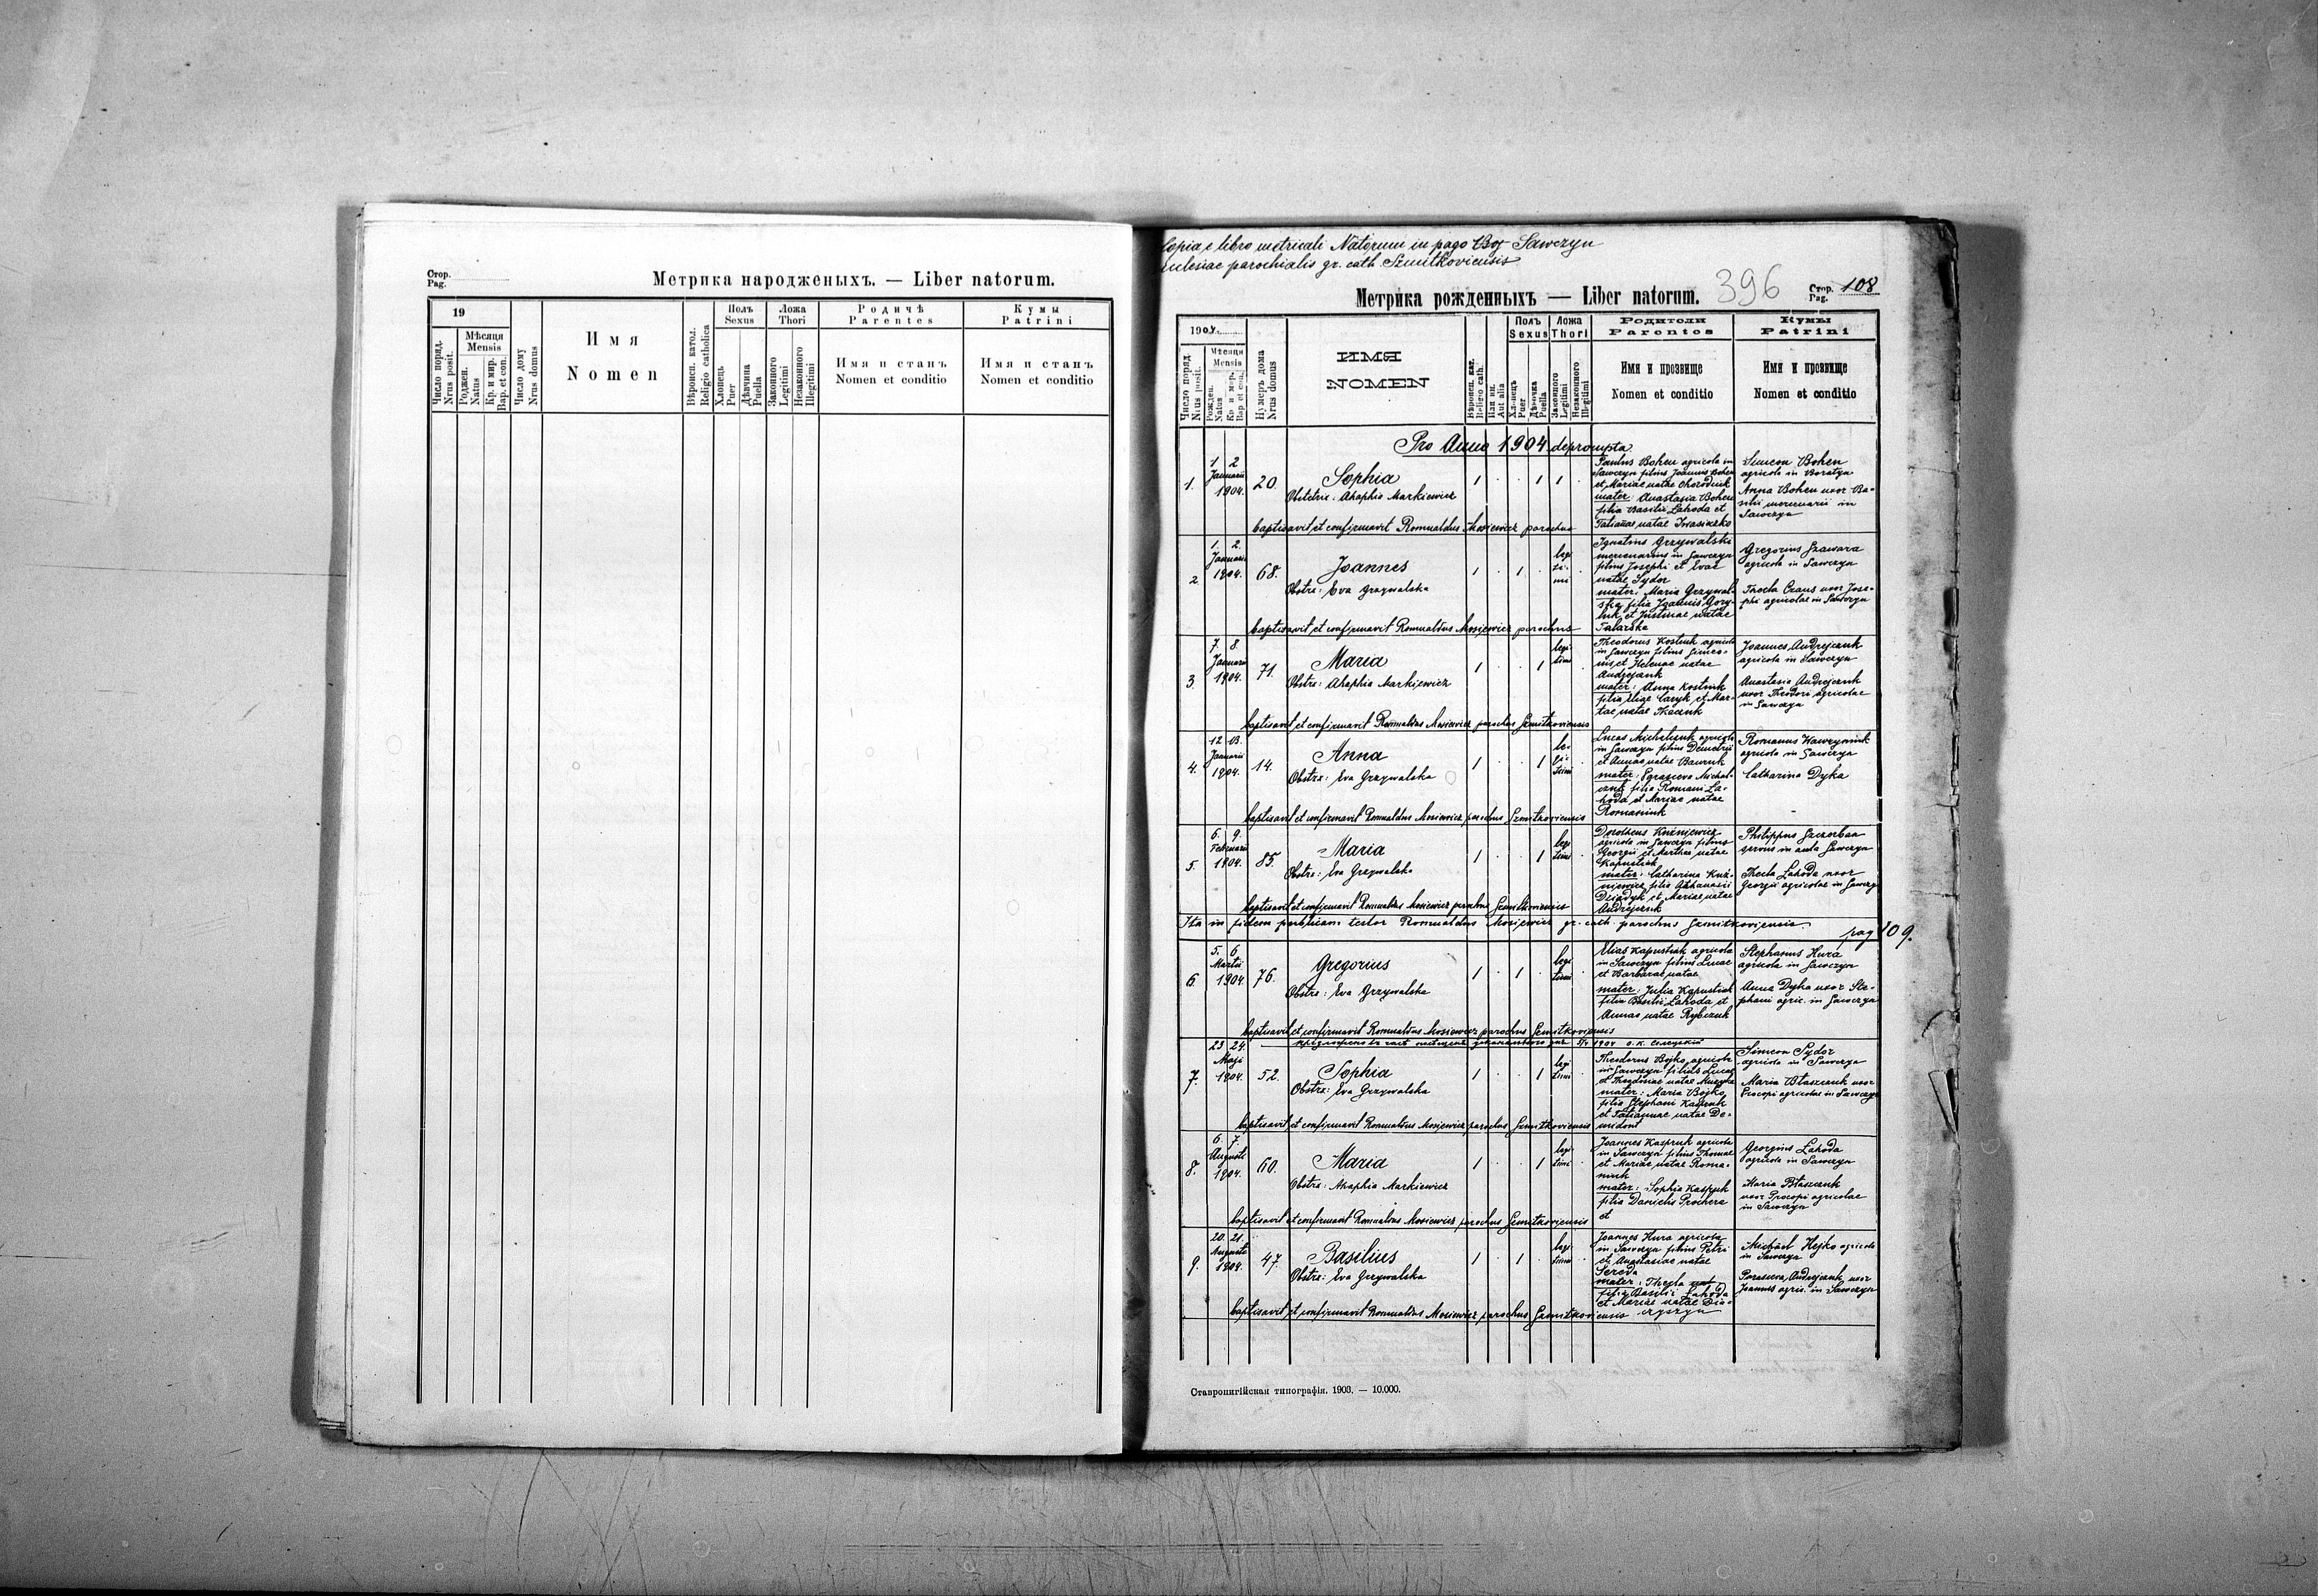 Стор.
Pag.
Метрика народженыхъ. — Liber natorum.
19
Число поряд.
Nrus posit.
Мѣсяця
Mensis
Роджен.
Natus
Кр. и мир.
Bap. et con.
Число дому
Nrus domus
Имя
Nomen
Вѣроисп. катол.
Religio catholica
Полъ
Sexus
Хлопець
Puer
Дѣвчина
Puella
Ложа
Thori
Законного
Legitimi
Незаконного
Illegitimi
Родичѣ
Parentes
Имя и станъ
Nomen et conditio
Кумы
Patrini
Имя и станъ
Nomen et conditio
Copia e libro metricali Natorum in pago Sawczyn
ecclesiae parochialis gr. cath. Szmitkoviensis
Метрика рожденныхъ — Liber natorum.
396
Стор.
Pag.
108
1904.
Число поряд.
Nrus posit.
Мѣсяця
Mensis
Рожден.
Natus
Кр. и мир.
Bap et con.
Нумеръ дома
Nrus domus
ИМЯ
NOMEN
Вѣроисп. кат.
Religio cath.
Или ин.
Aut alia
Полъ
Sexus
Хлопецъ
Puer
Дѣвочка
Puella
Ложа
Thori
Законного
Legitimi
Незаконного
Illegitimi
Родители
Parentes
Имя и прозвище
Nomen et conditio
Кумы
Patrini
Имя и прозвище
Nomen et conditio
Pro Anno 1904 deprompta
1.
1 2
Januarii
1904.
20.
Sophia
Obstetrix: Ahaphia Markiewicz
1 1 1
Paulus Bohen agricola in
Sawczyn filius Joannis Bohen
et Mariae natae Chorodnik
mater: Anastasia Bohen
filia Basilii Lahoda et
Tatiannae natae Iwasieczko
Simeon Bohen
agricola in Boratyn
Anna Bohen uxor Ba-
silii mercenarii in
Sawczyn
baptisavit et confirmavit Romualdus Mosiewicz parochus
2.
1. 2.
Januarii
1904.
68.
Joannes
Obstrx: Eva Grzywalska
1 1
legi
ti-
mi
Ignatius Grzywalski
mercenarius in Sawczyn
filius Josephi et Evae
natae Sydor
mater: Maria Grzywal-
ska filia Joannis Gory-
luk et Justinae natae
Talarska
Gregorius Szawara
agricola in Sawczyn
Thecla Czaus uxor Jose-
phi agricolae in Sawczyn
baptisavit et confirmavit Romualdus Mosiewicz parochus
3.
7. 8
Januarii
1904.
71.
Maria
Obstrx: Ahaphia Markiewicz
1 1
legi
timi
Theodorus Kostiuk agricola
in Sawczyn filius Simeo-
nis et Helenae natae
Andrejczuk
mater: Anna Kostiuk
filia Eliae Caryk et Mar-
tae natae Tkaczuk
Joannes Andrejczuk
agricola in Sawczyn
Anastasia Andrejczuk
uxor Theodori agricolae
in Sawczyn
baptisavit et confirmavit Romualdus Mosiewicz parochus Szmitkoviensis
4.
12 13.
Januarii
1904.
14.
Anna
Obstrx: Eva Grzywalska
1 1
le-
gi-
timi
Lucas Michalczuk agricola
in Sawczyn filius Demetrii
et Annae natae Bawruk
mater: Paraseva Michal-
czuk filia Romani La-
hoda et Mariae natae
Romaniuk
Romanus Hawryniuk
agricola in Sawczyn
Catharina Dyka
baptisavit et confirmavit Romualdus Mosiewicz parochus Szmitkoviensis
5.
6. 9.
Februarii
1904.
85.
Maria
Obstrx: Eva Grzywalska
1 1
legi
timi
Dorotheus Kuźniewicz
agricola in Sawczyn filius
Georgii et Marthae natae
Kapustiak
mater: Catharina Kuź-
niewicz filia Athanasii
Dziadyk et Mariae natae
Andrejczuk
Philippus Szczerban
servus in aula Sawczyn
Thecla Lahoda uxor
Georgii agricolae in Sawczyn
baptisavit et confirmavit Romualdus Mosiewicz parochus Szmitkoviensis
Ita in fidem publicam testor Romualdus Mosiewicz gr. cath. parochus Szmitkoviensis.
pag 109.
6.
5. 6
Martii
1904.
76.
Gregorius
Obstrx: Eva Grzywalska
1 1
legi
timi
Elias Kapustiak agricola
in Sawczyn filius Lucae
et Barbarae natae
mater: Julia Kapustiak
filia Basilii Lahoda et
Annae natae Rybczuk
Stephanus Hura
agricola in Sawczyn
Anna Dyka uxor Ste-
phani agric. in Sawczyn
baptisavit et confirmavit Romualdus Mosiewicz parochus Szmitkoviensis
7.
23 24.
Maji
1904.
52.
Sophia
Obstrx: Eva Grzywalska
1 1
legi
timi
Theodorus Bojko agricola
in Sawczyn filius Lucae
et Theodosiae natae Muzyka
mater: Maria Bojko
filia Stephani Kaspruk
et Tatiannae natae De-
midont
Simeon Sydor
agricola in Sawczyn
Maria Błaszczuk uxor
Procopi agricolae in Sawczyn
baptisavit et confirmavit Romualdus Mosiewicz parochus Szmitkoviensis
8.
6. 7.
Augusti
1904.
60.
Maria
Obstrx: Ahaphia Markiewicz
1 1
legi
timi
Joannes Kaspruk agricola
in Sawczyn filius Thomae
et Mariae natae Roma-
niuk
mater: Sophia Kaspruk
filia Danielis Prochera
et
Georgius Łahoda
agricola in Sawczyn
Maria Błaszczuk
uxor Procopi agricolae
in Sawczyn
baptisavit et confirmavit Romualdus Mosiewicz parochus Szmitkoviensis
9.
20. 21.
Augusti
1904.
47.
Basilius
Obstrx: Eva Grzywalska
1 1
legi
timi
Joannes Hura agricola
in Sawczyn filius Petri
et Anastasiae natae
Sereda
mater: Thecla
filia Basilii Lahoda
et Mariae natae Dia-
czyszyn
Michael Hejko agricola
in Sawczyn
Parasceva Andrejczuk uxor
Joannis agric. in Sawczyn
baptisavit et confirmavit Romualdus Mosiewicz parochus Szmitkoviensis
Ставропигійская типографія. 1903. — 10.000.